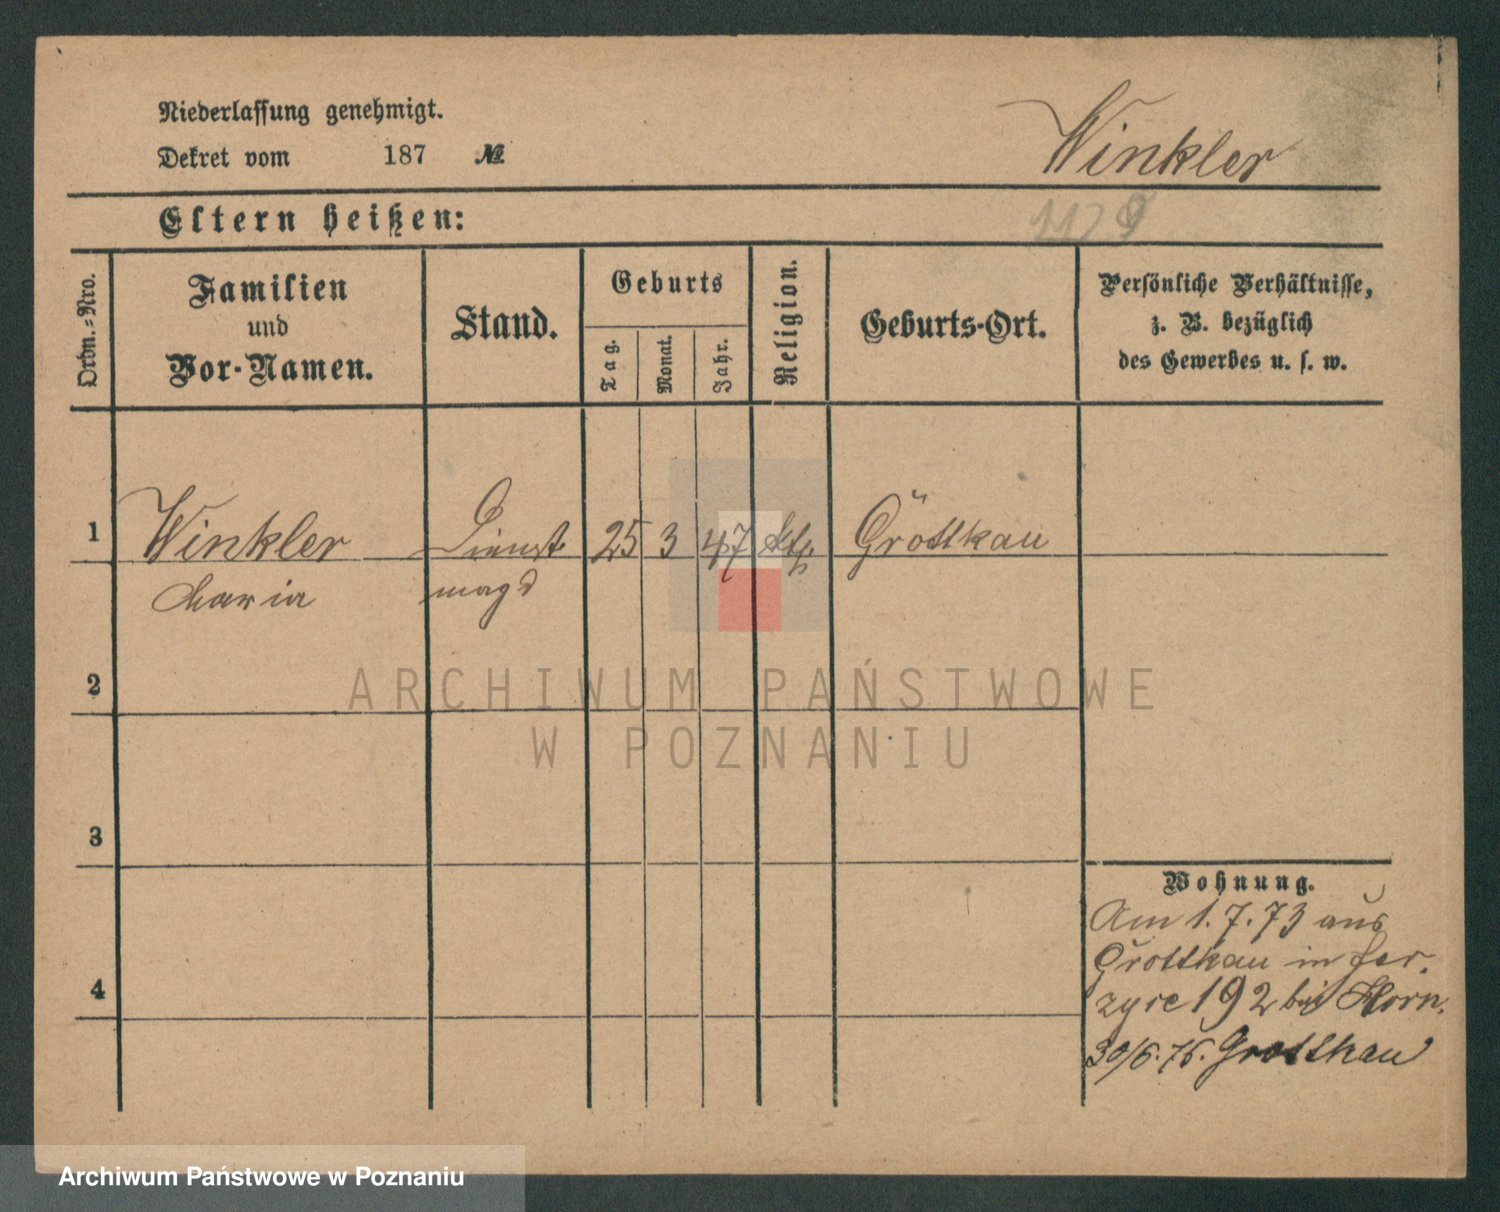 Niederlassung genehmigt.
Dekret vom 187 №
Winkler
Eltern heißen:
Ordn.-Nro.
Familien
und
Vor-Namen.
Stand.
Geburts
Tag.
Monat.
Jahr.
Religion.
Geburts-Ort.
Persönliche Verhältnisse,
z. B. bezüglich
des Gewerbes u. s. w.
1 Winkler Dienst 25 3 47 kth. Grottkau
Maria magd
2
ARCHIWUM PAŃSTWOWE
W POZNANIU
3
Wohnung.
Am 1.7.73 aus
Grottkau in Jer.
zyce 192 bei Horn.
4
30/6.76. Grottkau
Archiwum Państwowe w Poznaniu